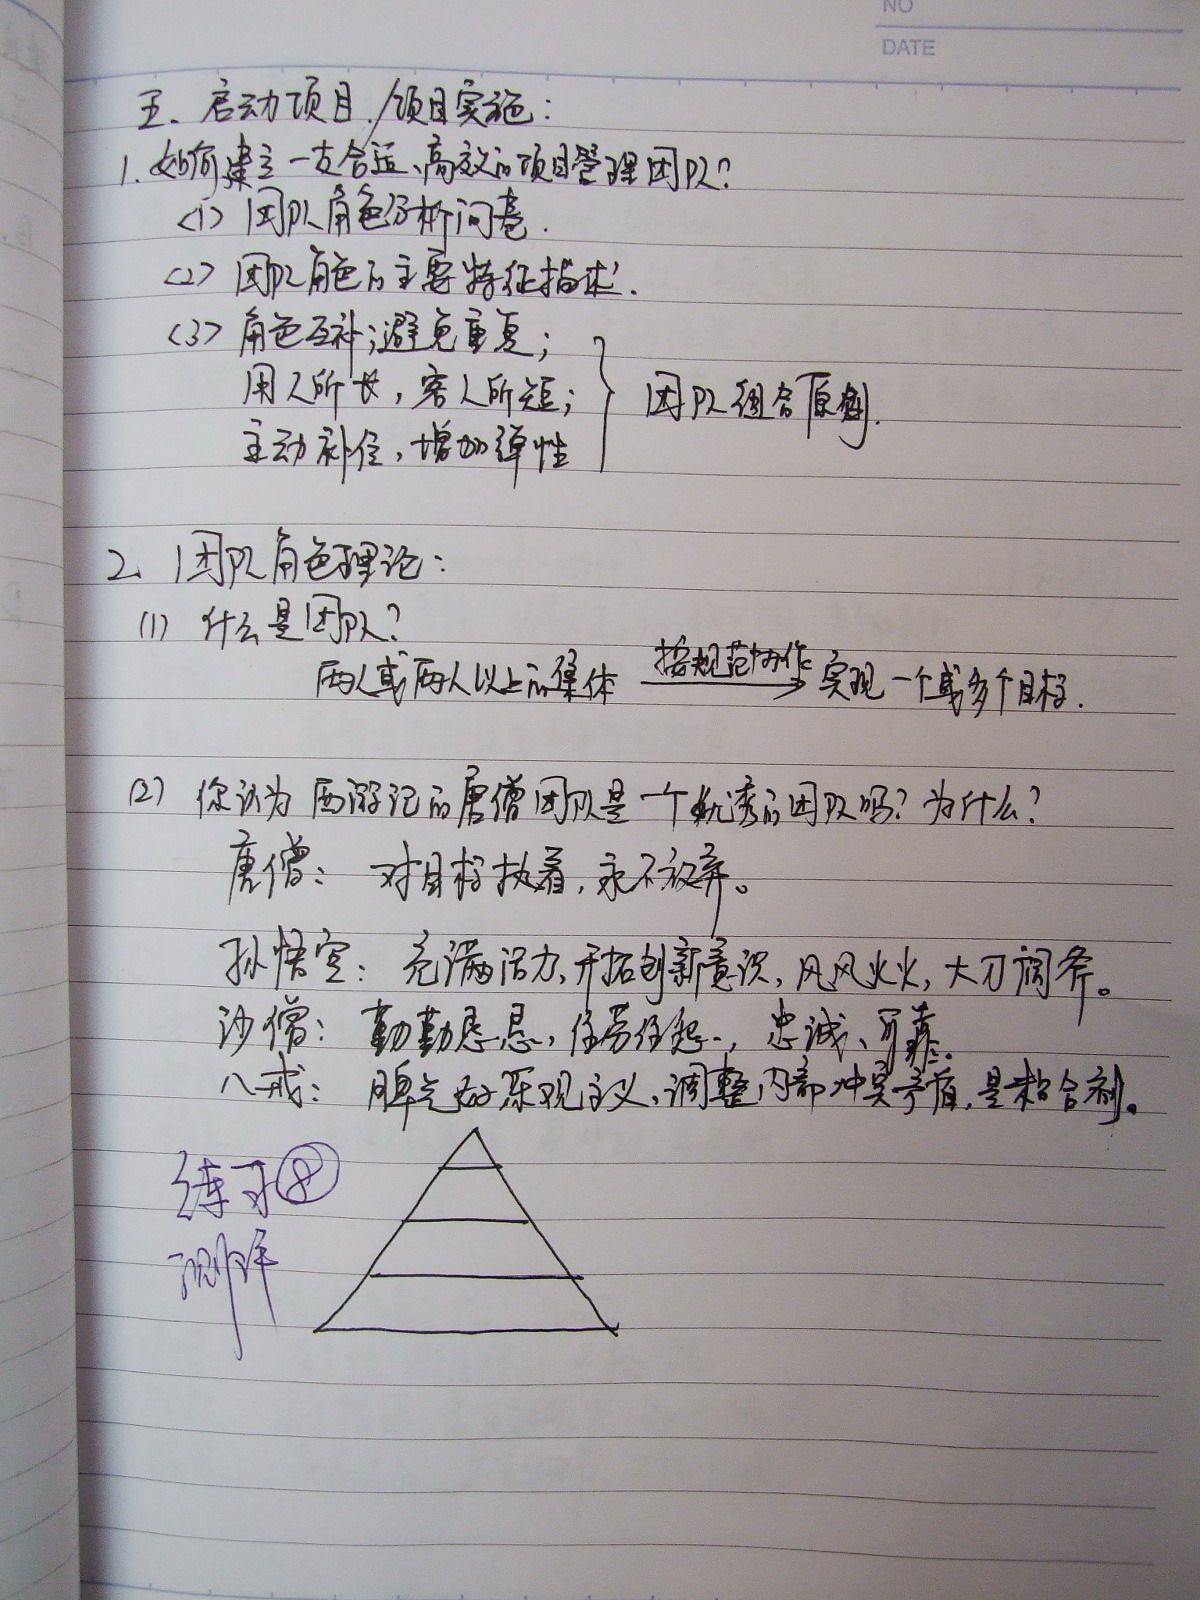 NO
DATE
五、启动项目/项目实施：
1. 如何建立一支合适、高效的项目管理团队？
(1) 团队角色分析问卷.
(2) 团队角色的主要特征描述.
(3) 角色互补；避免重复；
用人所长，容人所短； 团队组合原则.
主动补位，增加弹性
2、团队角色理论：
(1) 什么是团队？
两人或两人以上的集体 按规范协作 实现一个或多个目标.
(2) 你认为西游记的唐僧团队是一个优秀的团队吗？为什么？
唐僧： 对目标执着，永不放弃。
孙悟空： 充满活力，开拓创新意识，风风火火，大刀阔斧。
沙僧： 勤勤恳恳，任劳任怨，忠诚、可靠.
八戒： 脾气好 乐观主义，调整内部冲突矛盾，是粘合剂。
练习⑧